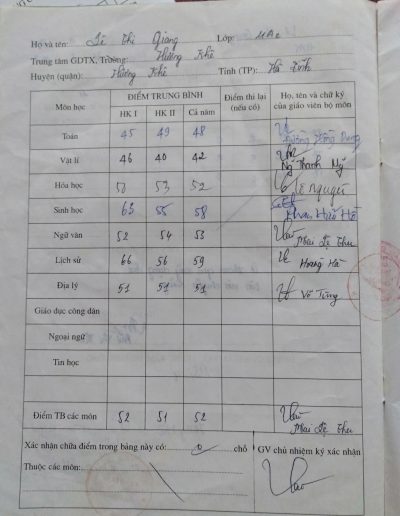 Họ và tên: Lê Thị Giang Lớp: 11A2
Trung tâm GDTX, Trường: Hương Khê
Huyện (quận): Hương Khê Tỉnh (TP): Hà Tĩnh
Môn học ĐIỂM TRUNG BÌNH Điểm thi lại (nếu có) Họ, tên và chữ ký của giáo viên bộ môn
HK I HK II Cả năm
Toán 45 49 48
Vật lí 46 40 42 Ng Thanh Mỹ
Hóa học 50 53 52 Lê Nguyên
Sinh học 63 55 58 Phan Hữu Hồ
Ngữ văn 52 54 53 Mai Lệ Thu
Lịch sử 66 56 59 Hoàng Hà
Địa lý 51 51 51 Võ Tùng
Giáo dục công dân
Ngoại ngữ
Tin học
Điểm TB các môn 52 51 52 Mai Lệ Thu
Xác nhận chữa điểm trong bảng này có: 0 chỗ
Thuộc các môn:
GV chủ nhiệm ký xác nhận